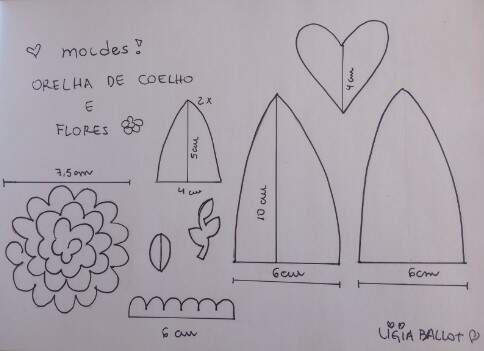 moldes!
ORELHA DE COELHO
E
FLORES
2x
5cm
4 cm
4cm
10 cm
6cm
6cm
7,5cm
6 cm
LÍGIA BALLOT